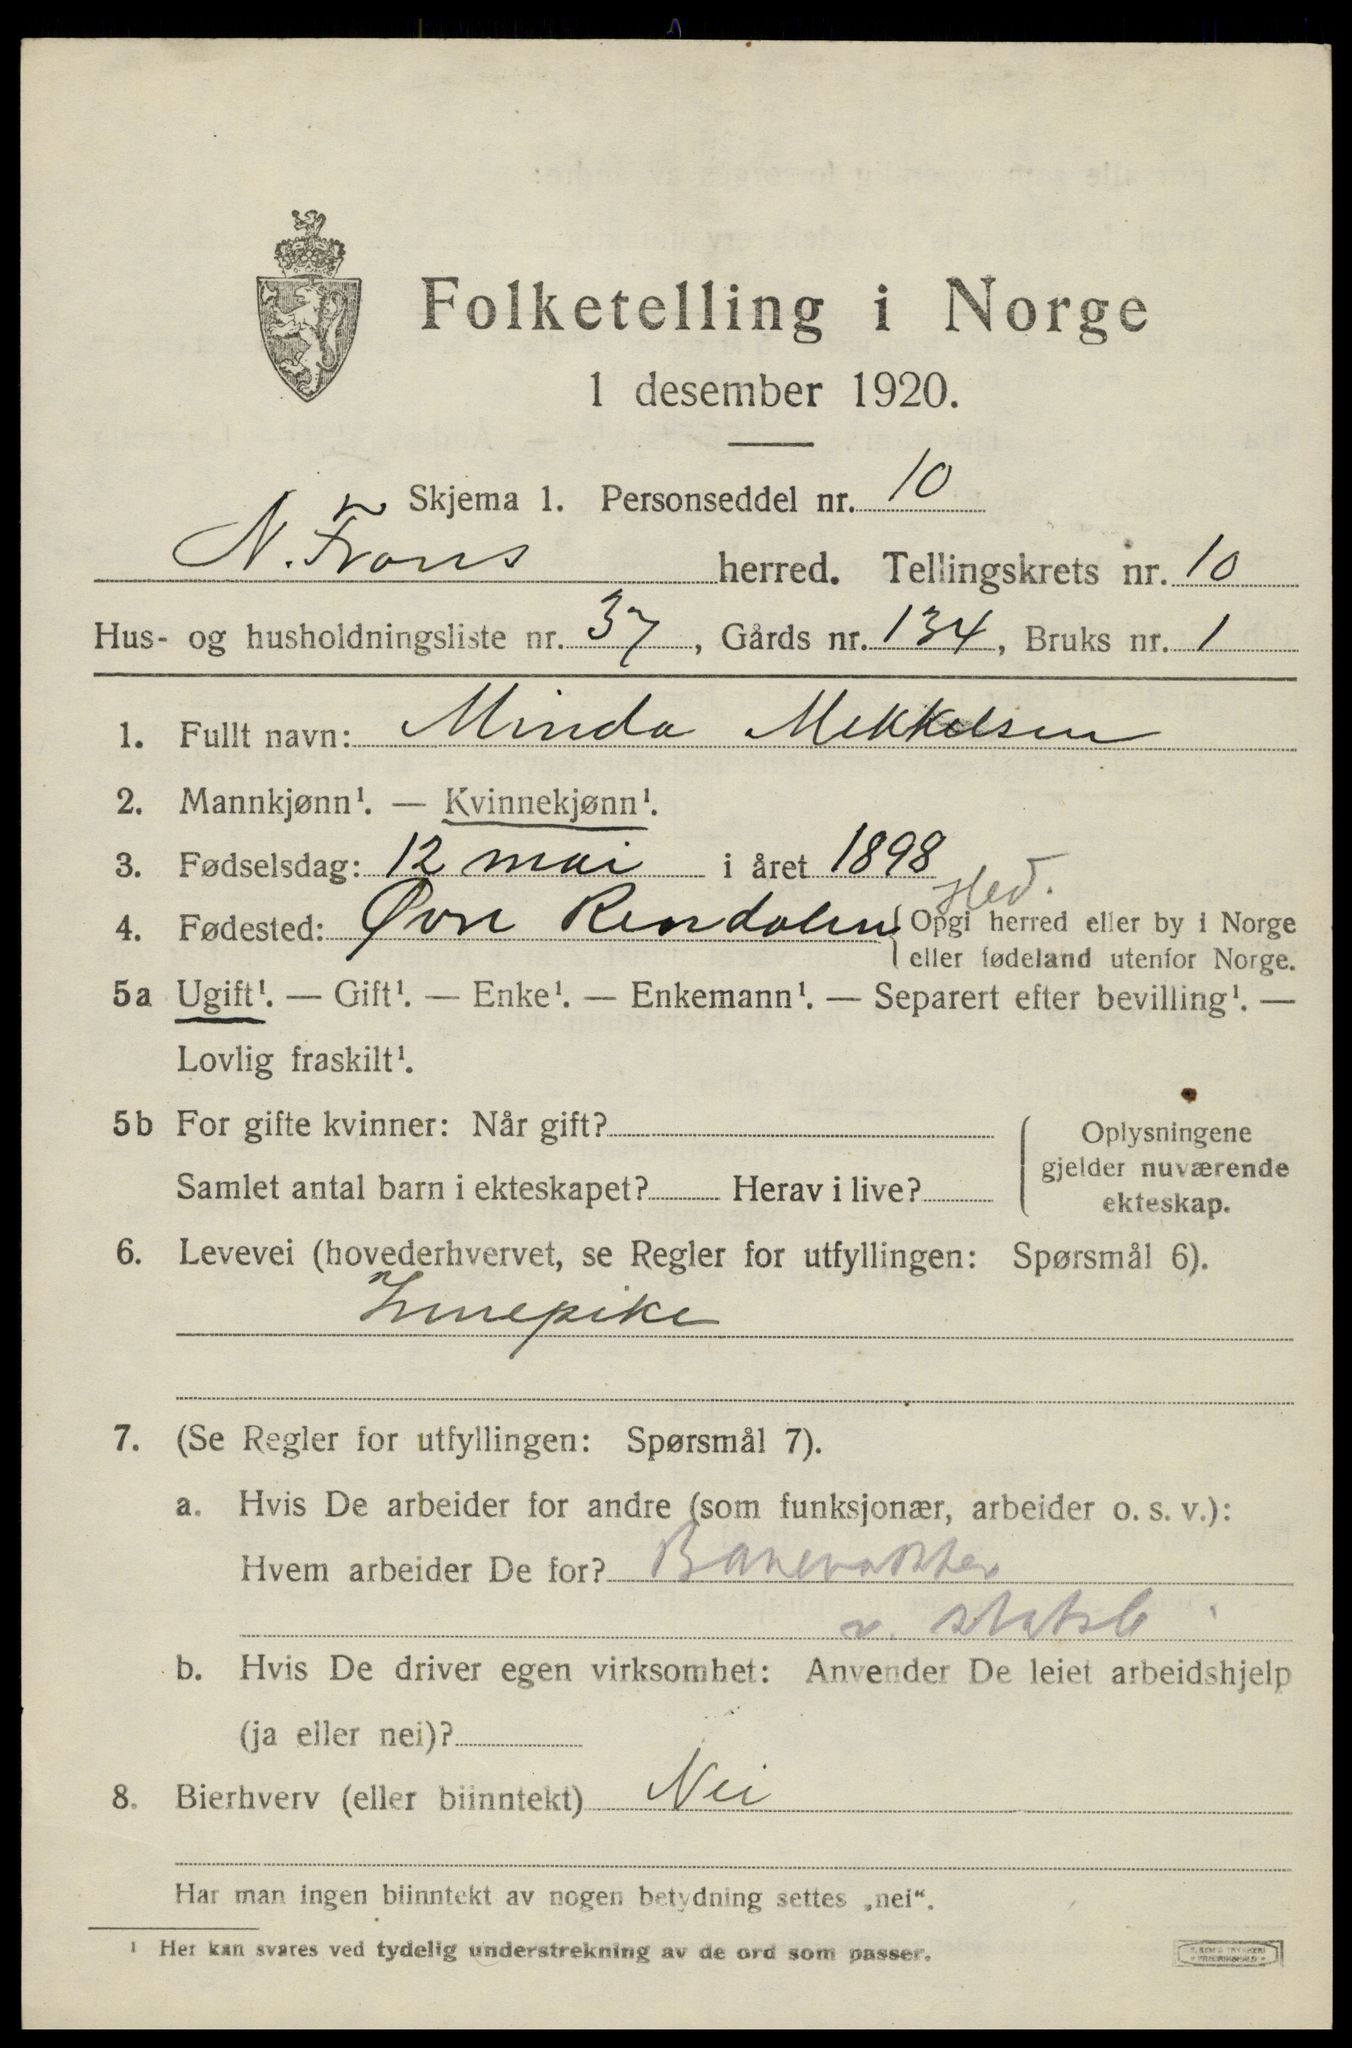 Folketelling i Norge
1 desember 1920.
Skjema 1. Personseddel nr. 10
N. Frons herred. Tellingskrets nr. 10
Hus- og husholdningsliste nr. 37, Gårds nr. 134, Bruks nr. 1
1. Fullt navn: Minda Mekkelsen
2. Mannkjønn¹. — Kvinnekjønn¹.
3. Fødselsdag: 12 mai i året 1898
Hed.
4. Fødested: Øvre Rendalen { Opgi herred eller by i Norge
eller fødeland utenfor Norge.
5a Ugift¹. — Gift¹. — Enke¹. — Enkemann¹. — Separert efter bevilling¹. —
Lovlig fraskilt¹.
5b For gifte kvinner: Når gift?
Samlet antal barn i ekteskapet? Herav i live?
Oplysningene
gjelder nuværende
ekteskap.
6. Levevei (hovederhvervet, se Regler for utfyllingen: Spørsmål 6).
Innepike
7. (Se Regler for utfyllingen: Spørsmål 7).
a. Hvis De arbeider for andre (som funksjonær, arbeider o. s. v.):
Hvem arbeider De for? Banevokter
v. statsb
b. Hvis De driver egen virksomhet: Anvender De leiet arbeidshjelp
(ja eller nei)?
8. Bierhverv (eller biinntekt) Nei
Har man ingen biinntekt av nogen betydning settes „nei“.
¹ Her kan svares ved tydelig understrekning av de ord som passer.